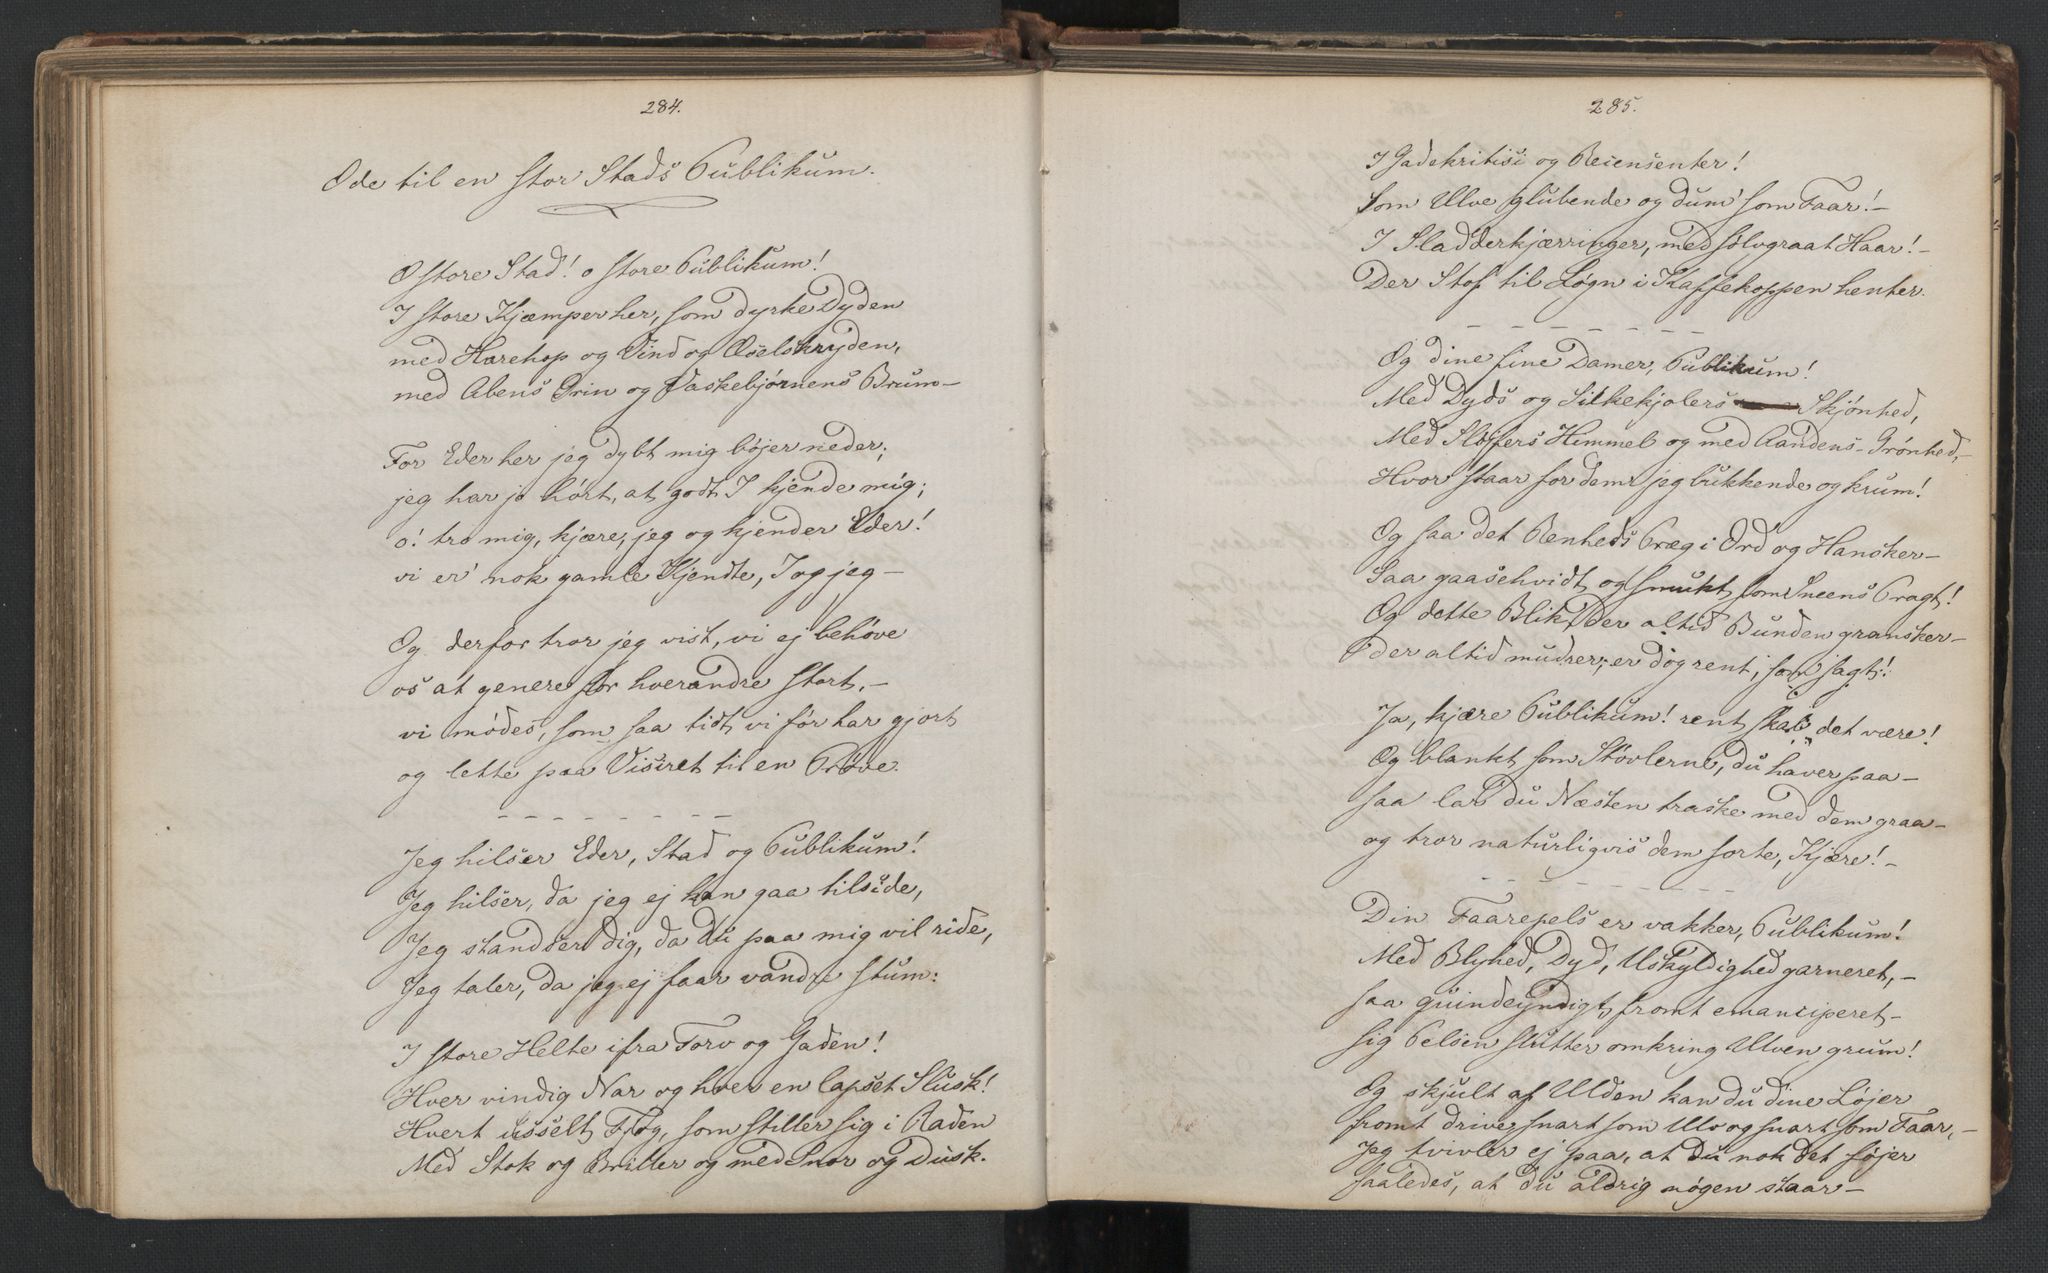 284.
Ode til en stor Stads Publikum.
O store Stad! o store Publikum!
I store Kjæmper her, som dyrke Dyden
med Harehop og Vind og Æselskryden,
med Abens Grin og Vaskebjørnens Brum—
For Eder her jeg dybt mig bøjer neder;
jeg har jo hørt, at godt I kjende mig;
o! tro mig, kjære, jeg og kjender Eder!
vi er' nok gamle Kjendte, I og jeg—
Og derfor tror jeg vist, vi ej behøve
os at genere for hverandre stort,—
vi mødes, som saa tidt vi før har gjort
og lette paa Visiret til en Prøve.
— — — — — — — —
Jeg hilser Eder, Stad og Publikum!
Jeg hilser, da jeg ej kan gaa tilside,
Jeg standser dig, da du paa mig vil ride,
Jeg taler, da jeg ej faar vandre stum:
I store Helte ifra Torv og Gaden!
Hver vindig Nar og hver en lapset Slusk!
Hvert usselt Fjog, som stiller sig i Raden
Med Stok og Briller og med Snor og Dusk.
285.
I Gadekritisi og Resensenter!
Som Ulve glubende og dum' som Faar!—
I Sladderkjærringer, med sølvgraat Haar!—
Der Stof til Løgn i Kaffekoppen henter.
— — — — — — — —
Og dine fine Damer, Publikum!
Med Dyds og Silkekjolers Skjønhed,
Med Sløjfers Himmel og med Aandens-Grønhed,—
Hvor staar for dem jeg bukkende og krum!
Og saa det Renheds Præg i Ord og Hansker—
Saa gaasehvidt og smukt som Sneens Pragt!
Og dette Blik, der altid Bunden gransker—
der altid mudrer, er dog rent, som sagt!
Ja, kjære Publikum! rent skal det være!
Og blankt som Støvlerne, du haver paa—
saa lad du Næsten traske med dem graa—
og tror naturligvis dem sorte, Kjære!—
— — — — — — — —
Din Faarepels er vakker, Publikum!
Med Blyhed, Dyd, Uskyldighed garneret,—
saa quindeyndigt, fromt emanciperet—
sig Pelsen slutter omkring Ulven grum!
Og skjult af Ulden kan du dine Løjer
fromt drive snart som Ulv og snart som Faar,—
Jeg tvivler ej paa, at du nok det føjer
saaledes, at du aldrig nøgen staar—